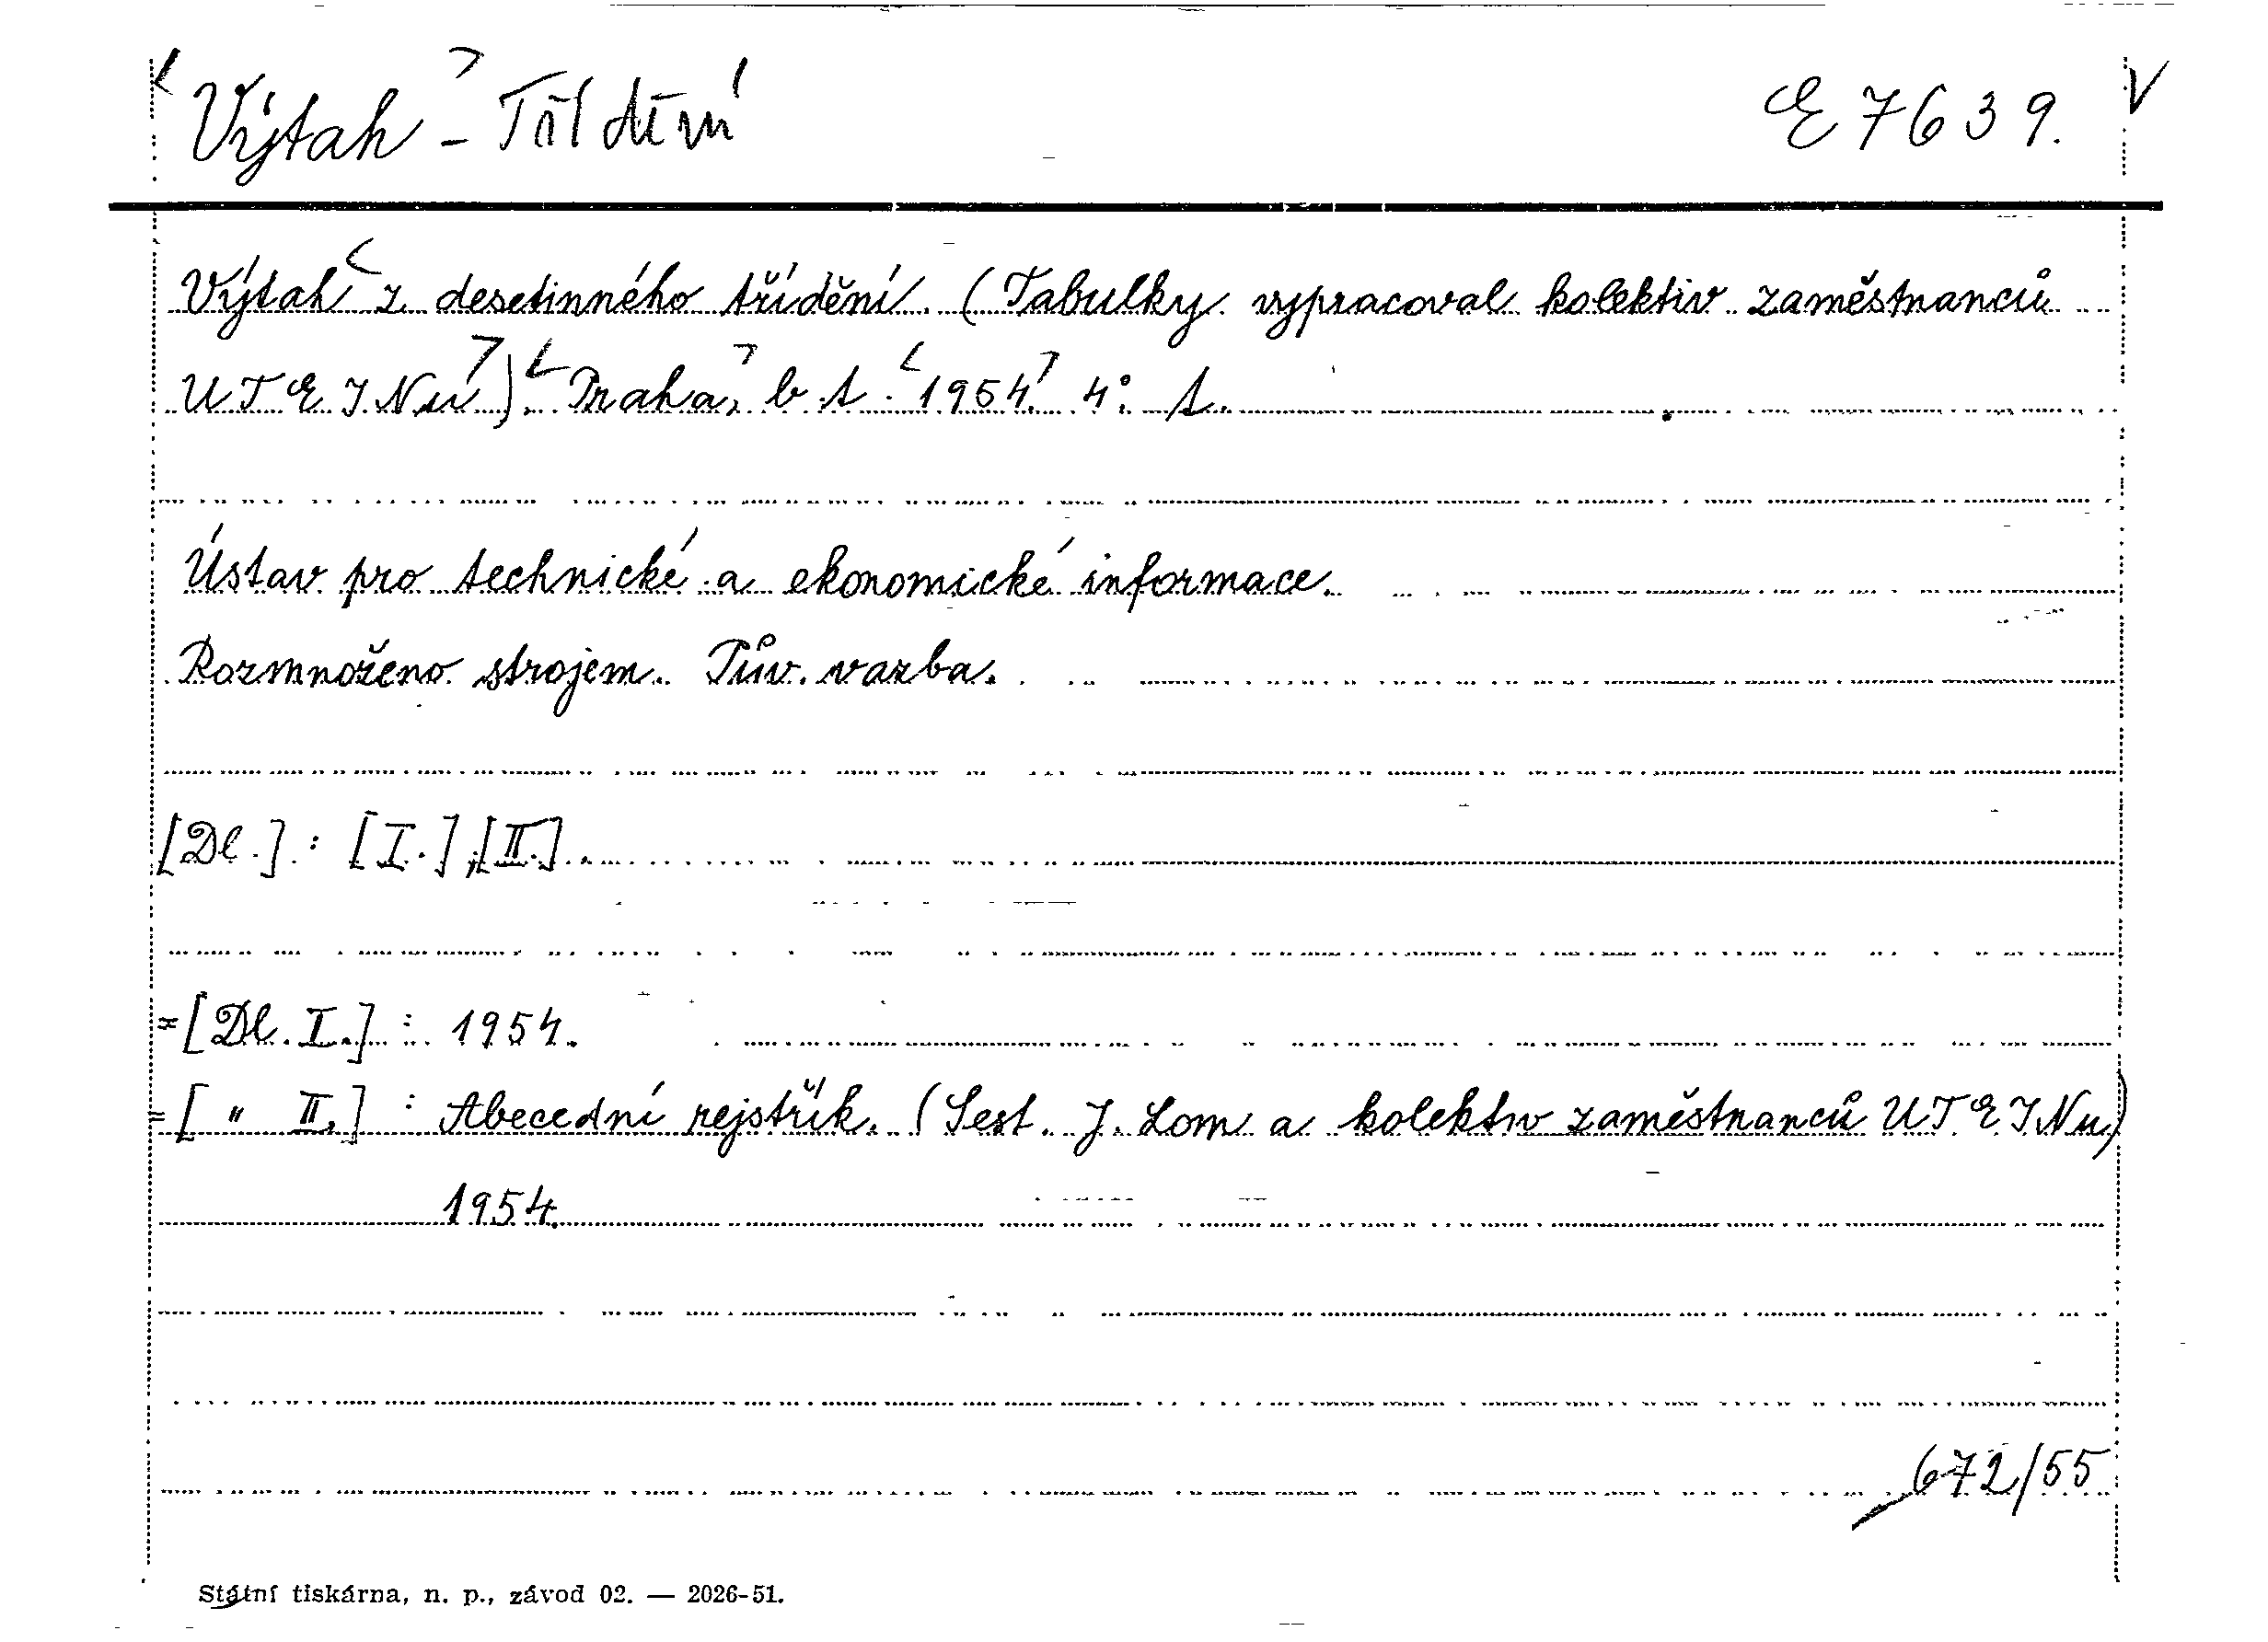 Výtah - Třídění E 7639. V
Výtah z desetinného třídění. (Tabulky vypracoval kolektiv zaměstnanců
UTEINu). Praha, b. t. 1954. 4°. 1.
Ústav pro technické a ekonomické informace.
Rozmnoženo strojem. Pův. vazba.
[Dl.] : [I.], [II.].
=[Dl. I.] : 1954.
=[ " II.] : Abecední rejstřík. (Sest. J. Lom a kolektiv zaměstnanců UTEINu)
1954.
672/55
Státní tiskárna, n. p., závod 02. — 2026-51.